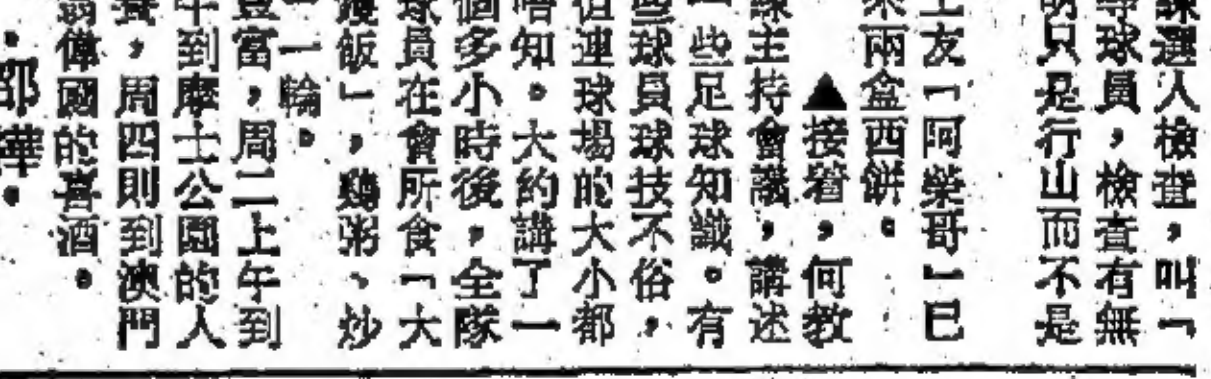 練選人檢查，叫「
等球員，檢查有無
明只是行山而不是
士友「阿榮哥」已
來兩盒西餅。
▲接着，何教
練主持會議，講述
一些足球知識。有
些球員球技不俗，
但連球場的大小都
唔知。大約講了一
個多小時後，全隊
球員在會所食「大
鑊飯」，鷄粥、炒
一輪。
豐富，周二上午到
午到摩士公園的人
賽，周四則到澳門
翁偉國的喜酒。
．邵華．